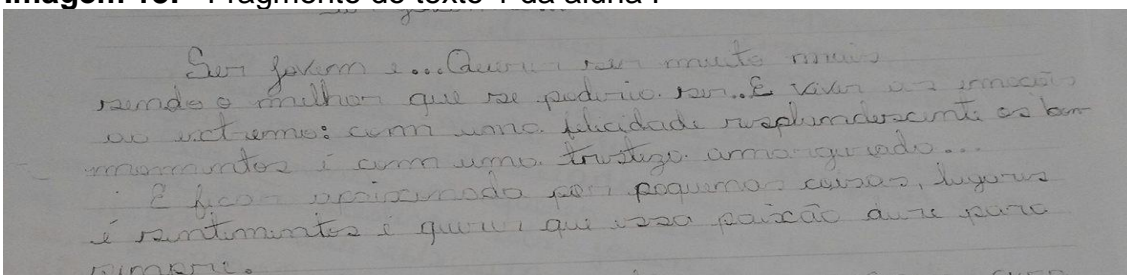 Imagem 10: Fragmento do texto 1 da aluna I
Ser jovem e...Querer ser muito mais
sendo o melhor que se poderia ser..E viver as emoções
ao extremo: com uma felicidade resplandescente os bom
mommentos i com uma tristeza amargurada...
E ficar apaixonada por pequenas coisas, lugares
e sentimentos i querer que essa paixão dure para
sempre.